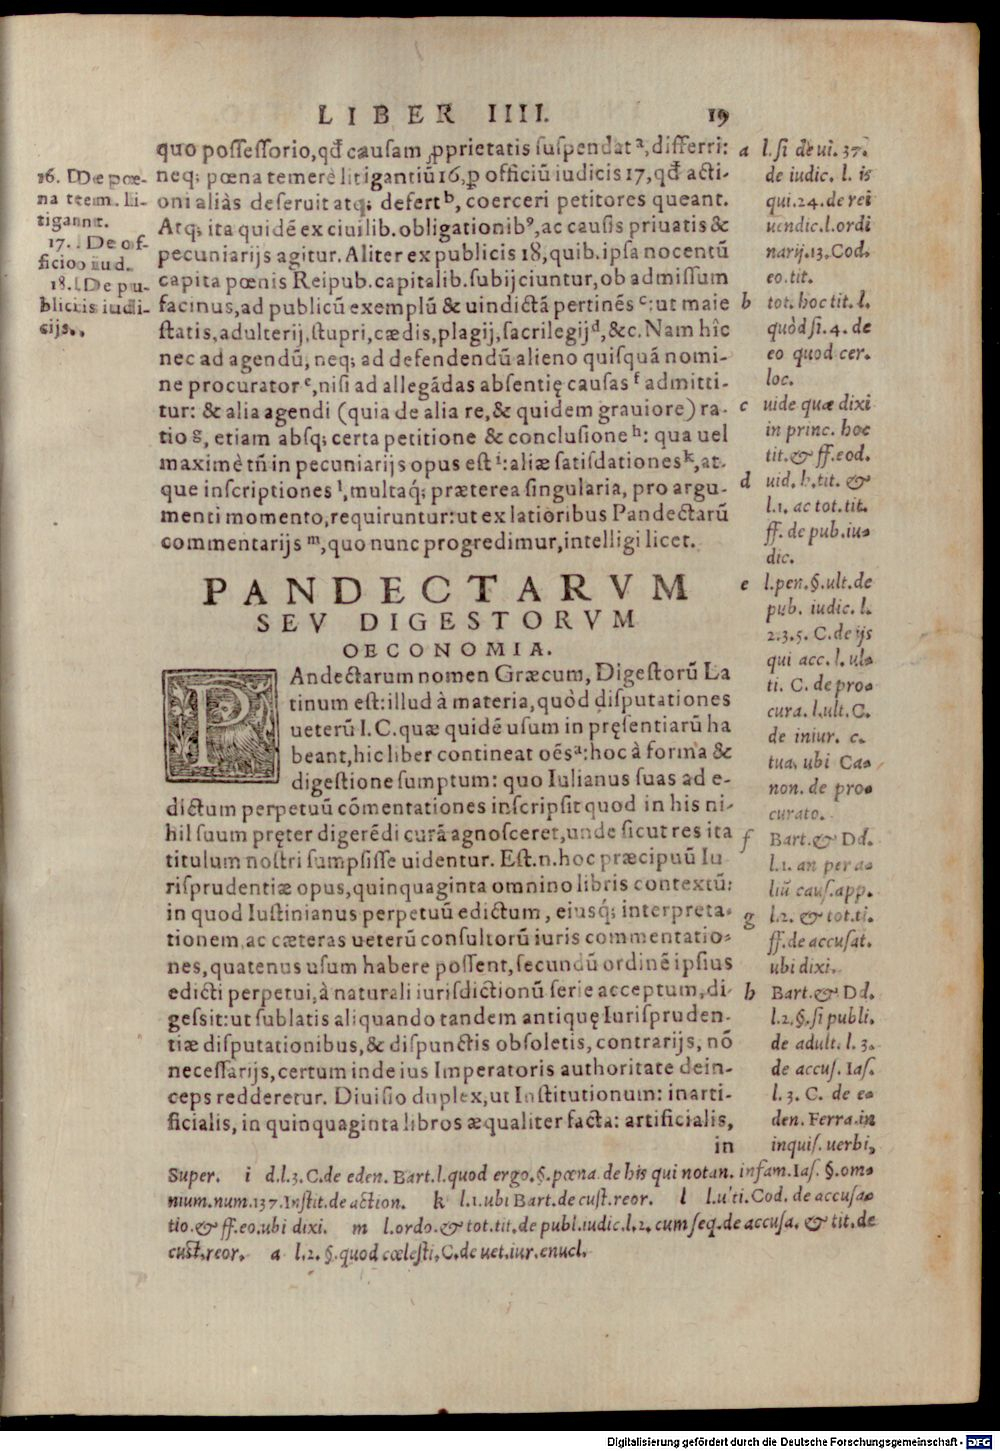 LIBER IIII. 19
quo possessorio, qđ causam ꝓprietatis suspendat a, differri:
neq; pœna temerè litigantiũ 16, ꝑ officiũ iudicis 17, qđ acti-
oni aliàs deseruit atq; defert b, coerceri petitores queant.
Atq; ita quidẽ ex ciuilib. obligationib9, ac causis priuatis &
pecuniarijs agitur. Aliter ex publicis 18, quib. ipsa nocentũ
capita pœnis Reipub. capitalib. subijciuntur, ob admissum
facinus, ad publicũ exemplũ & uindictã pertinẽs c: ut maie
statis, adulterij, stupri, cædis, plagij, sacrilegij d, &c. Nam hîc
nec ad agendũ, neq; ad defendendũ alieno quisquã nomi-
ne procurator e, nisi ad allegãdas absentię causas f admitti-
tur: & alia agendi (quia de alia re, & quidem grauiore) ra-
tio g, etiam absq; certa petitione & conclusione h: qua uel
maximè tñ in pecuniarijs opus est i: aliæ satisdationes k, at-
que inscriptiones l, multaq́; præterea singularia, pro argu-
menti momento, requiruntur: ut ex latioribus Pandectarũ
commentarijs m, quo nunc progredimur, intelligi licet.
PANDECTARVM
SEV DIGESTORVM
OECONOMIA.
PAndectarum nomen Græcum, Digestorũ La
tinum est: illud à materia, quòd disputationes
ueterũ I. C. quæ quidẽ usum in pręsentiarũ ha
beant, hic liber contineat oẽs a: hoc à forma &
digestione sumptum: quo Iulianus suas ad e-
dictum perpetuũ cõmentationes inscripsit quod in his ni-
hil suum pręter digerẽdi curã agnosceret, unde sicut res ita
titulum nostri sumpsisse uidentur. Est. n. hoc præcipuũ Iu
risprudentiæ opus, quinquaginta omnino libris contextũ:
in quod Iustinianus perpetuũ edictum, eiusq́; interpreta-
tionem ac cæteras ueterũ consultorũ iuris commentatio-
nes, quatenus usum habere possent, secundũ ordinẽ ipsius
edicti perpetui, à naturali iurisdictionũ serie acceptum, di-
gessit: ut sublatis aliquando tandem antiquę Iurispruden-
tiæ disputationibus, & dispunctis obsoletis, contrarijs, nõ
necessarijs, certum inde ius Imperatoris authoritate dein-
ceps redderetur. Diuisio duplex, ut Institutionum: inarti-
ficialis, in quinquaginta libros æqualiter facta: artificialis,
in
16. De pœ-
na teem. li-
tigannt.
17. De of-
ficioo iud.
18. De pu-
blicris iudi-
cijs.
a l. si de ui. 37.
de iudic. l. is
qui. 24. de rei
uendic. l. ordi
narij. 13. Cod.
eo. tit.
b tot. hoc tit. l.
quòd si. 4. de
eo quod cer.
loc.
c uide quæ dixi
in princ. hoc
tit. & ff. eod.
d uid. h. tit. &
l. 1. ac tot. tit.
ff. de pub. iu-
dic.
e l. pen. §. ult. de
pub. iudic. l.
2. 3. 5. C. de ijs
qui acc. l. ul-
ti. C. de pro-
cura. l. ult. C.
de iniur. c.
tua, ubi Ca-
non. de pro-
curato.
f Bart. & Dd.
l. 1. an per a-
liũ caus. app.
g l. 2. & tot. ti.
ff. de accusat.
ubi dixi.
h Bart. & Dd.
l. 2. §. si publi.
de adult. l. 3.
de accus. Ias.
l. 3. C. de e-
den. Ferra. in
inquis. uerbi,
Super. i d. l. 3. C. de eden. Bart. l. quod ergo. §. pœna. de his qui notan. infam. Ias. §. om-
nium. num. 137. Instit. de action. k l. 1. ubi Bart. de cust. reor. l l. u'ti. Cod. de accusa-
tio. & ff. eo. ubi dixi. m l. ordo. & tot. tit. de publ. iudic. l. 2. cum seq. de accusa. & tit. de
cust. reor. a l. 2. §. quod cœlesti, C. de uet. iur. enucl.
Digitalisierung gefördert durch die Deutsche Forschungsgemeinschaft - DFG